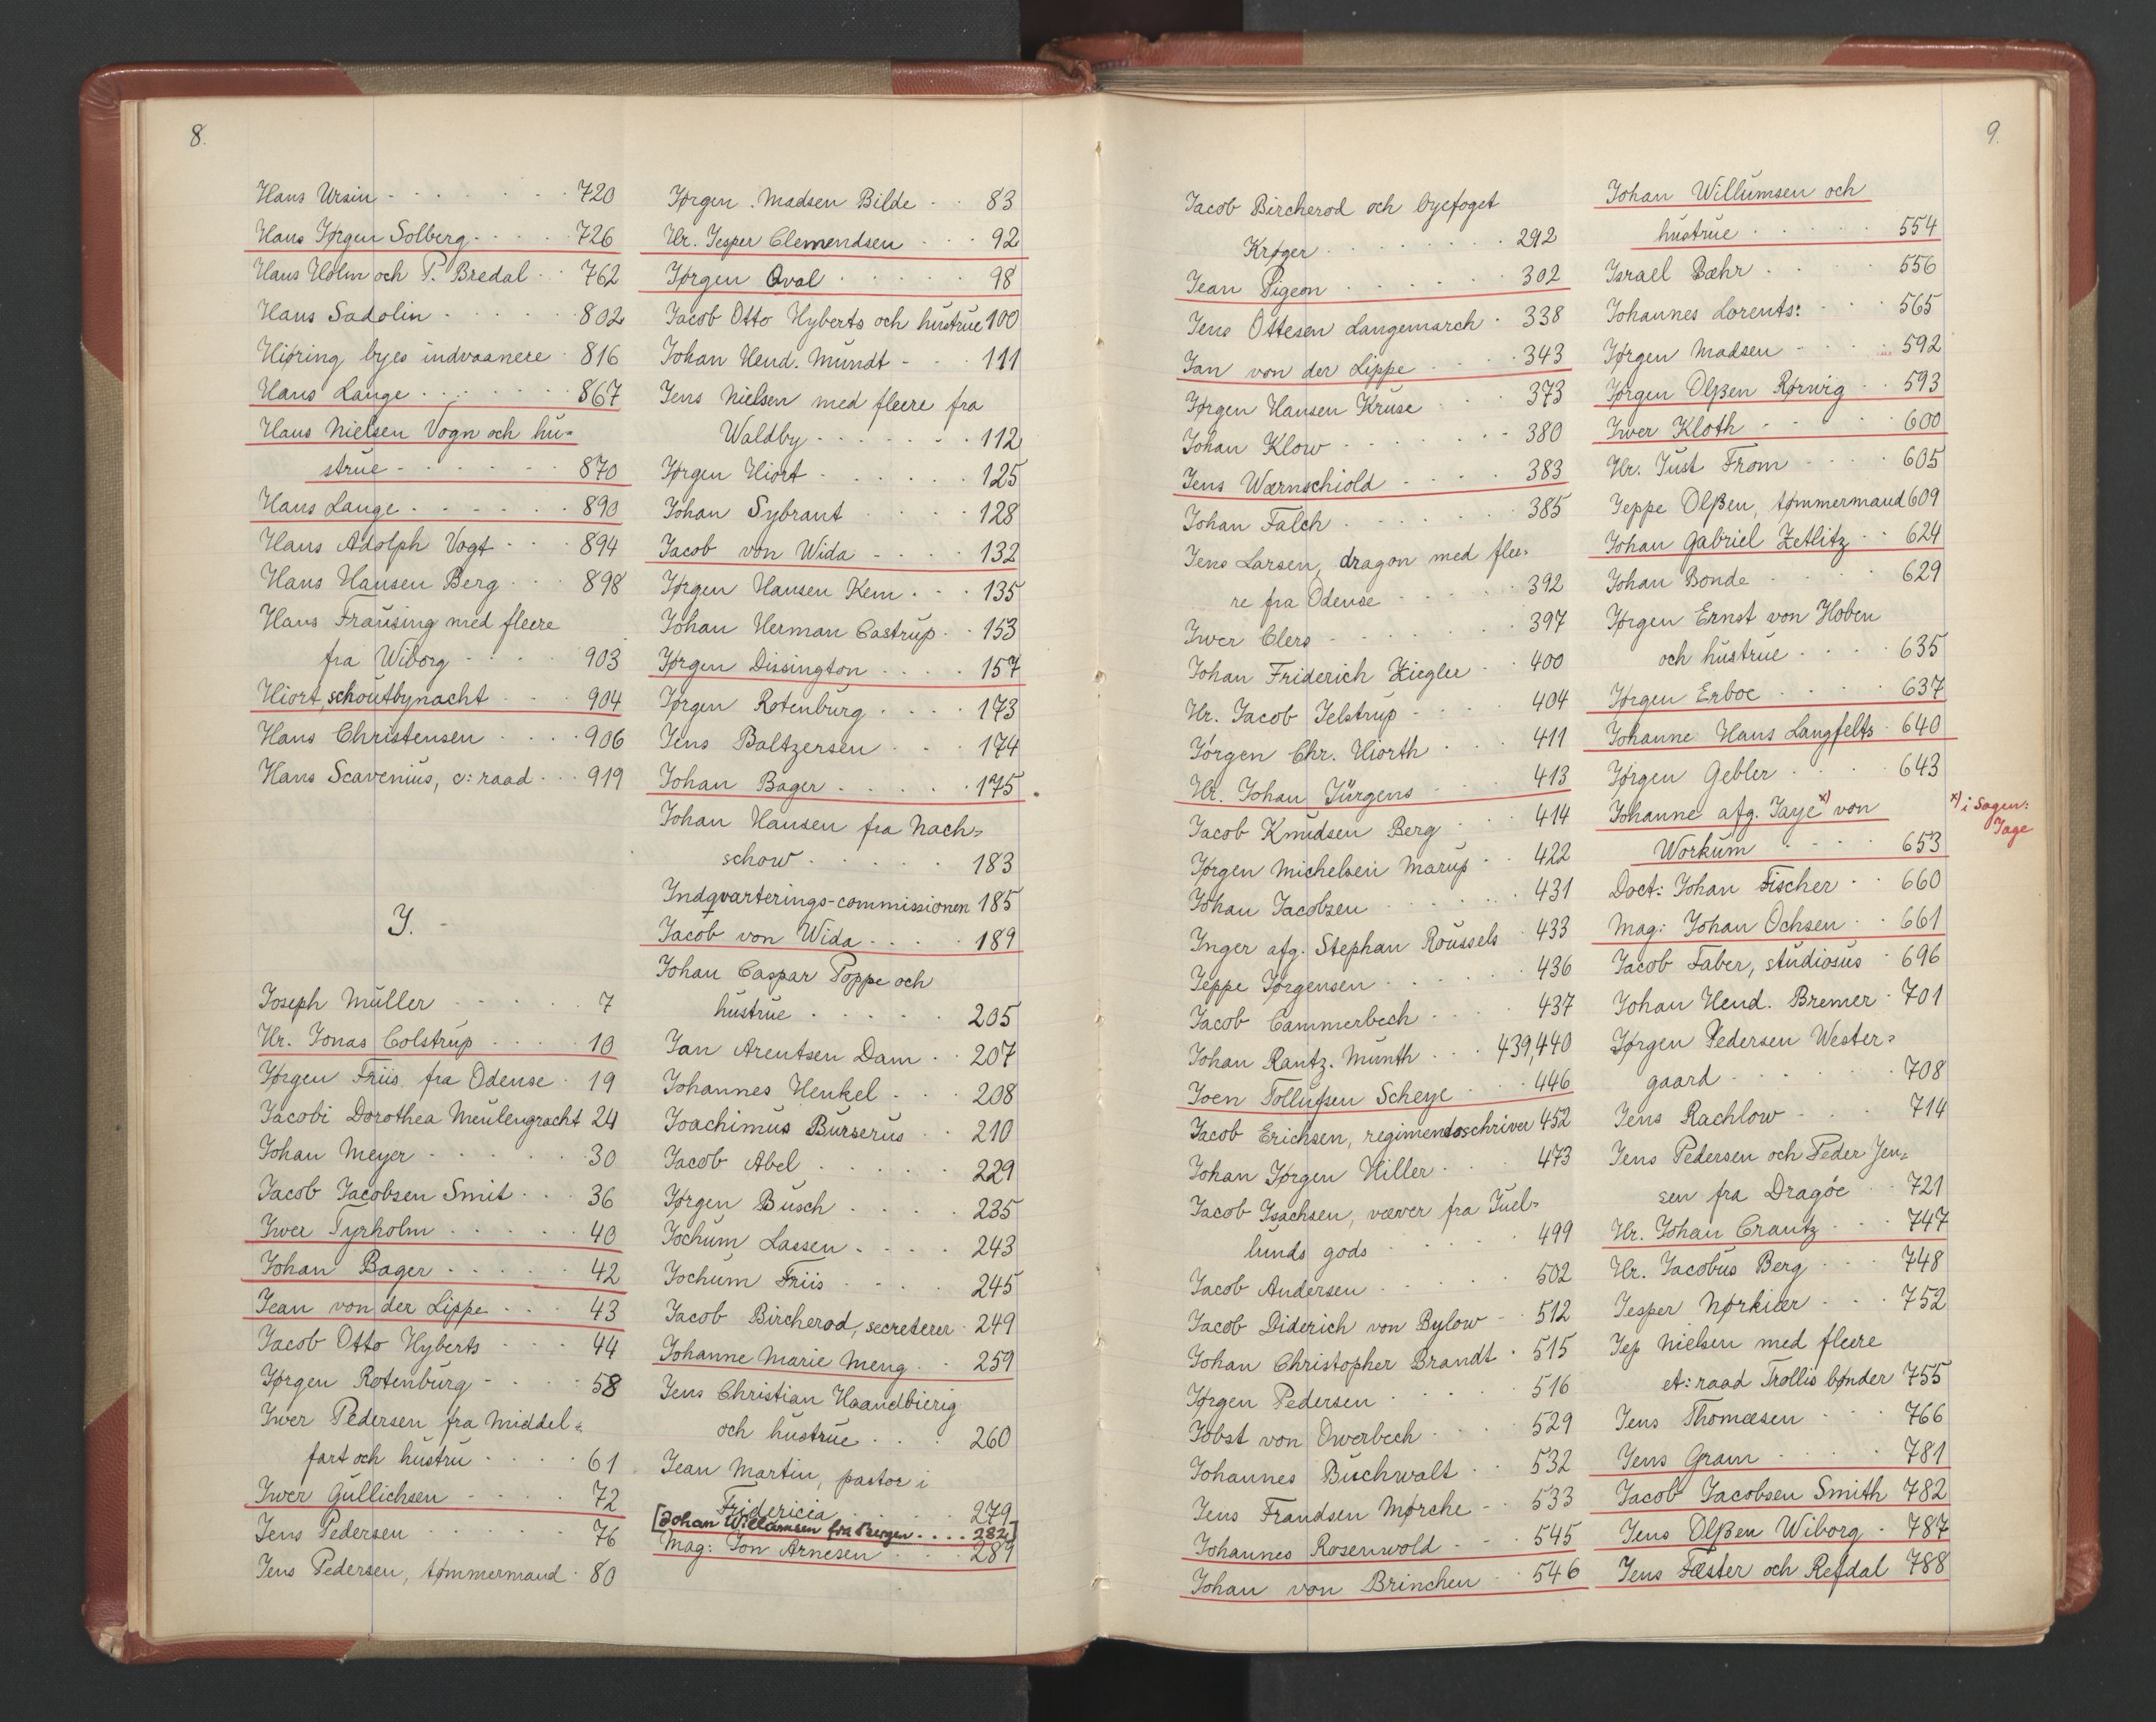 8.
Hans Ursin - - - - - - - 720
Hans Jørgen Solberg - - - - - 726
Hans Holm och P. Bredal - - 762
Hans Sadolin - - - - - - 802
Hiøring byes indvaanere - 816
Hans Lange - - - - - - - 867
Hans Nielsen Vogn och hu=
strue - - - - - - 870
Hans Lange - - - - - - 890
Hans Adolph Vogt - - - 894
Hans Hansen Berg - - - 898
Hans Frausing med fleere
fra Wiborg - - - - 903
Hiort, schoutbynacht - - - 904
Hans Christensen - - - - 906
Hans Scavenius, c: raad - - - 919
J. -
Joseph Müller - - - - - 7
Hr. Jonas Colstrup - - - - 10
Jørgen Friis, fra Odense - 19
Jacobi Dorothea Meulengracht 24
Johan Meyer - - - - - - 30
Jacob Jacobsen Smit - - - 36
Iwer Tyrholm - - - - - - 40
Johan Bager - - - - - - 42
Jean von der Lippe - - - 43
Jacob Otto Hyberts - - - 44
Jørgen Rotenburg - - - - 58
Iwer Pedersen fra Middel=
fart och hustru - - - - 61
Iwer Gullichsen - - - - 72
Jens Pedersen - - - - - 76
Jens Pedersen, tømmermand - 80
Jørgen Madsen Bilde - - 83
Hr. Jesper Clemendsen - - - 92
Jørgen Oval - - - - - 98
Jacob Otto Hyberts och hustrue 100
Johan Hend. Mundt - - - 111
Jens Nielsen med fleere fra
Waldby - - - - - - - 112
Jørgen Hiort - - - - - - 125
Johan Sybrant - - - - 128
Jacob von Wida - - - - 132
Jørgen Hansen Kem - - - 135
Johan Herman Castrup - - 153
Jørgen Dissington - - - - 157
Jørgen Rotenburg - - - - 173
Jens Baltzersen - - - 174
Johan Bager - - - - - - 175
Johan Hansen fra Nach=
schow - - - - - 183
Indqvarterings-commissionen 185
Jacob von Wida - - - - 189
Johan Caspar Poppe och
hustrue - - - - - 205
Jan Arentsen Dam - - 207
Johannes Henkel - - - 208
Joachimus Burserus - - 210
Jacob Abel - - - - - 229
Jørgen Busch - - - - 235
Jochum Lassen - - - - 243
Jochum Friis - - - - 245
Jacob Bircherod, secreterer - 249
Johanne Marie Meng - - 259
Jens Christian Haandbierig
och hustrue - - - 260
Jean Martin, pastor i
Fridericia - - - - 279
[Johan Willumsen fra Bergen . . . . 282]
Mag: Jon Arnesen - - - 289
9.
Jacob Bircherod och byefoget
Krøger - - - - - - - 292
Jean Pigeon - - - - - - 302
Jens Ottesen Langemarch - 338
Jan von der Lippe - - - 343
Jørgen Hansen Kruse - - 373
Johan Klow - - - - - - 380
Jens Wærnschiold - - - - 383
Johan Falch - - - - - - 385
Jens Larsen, dragon med flee=
re fra Odense - - - - 392
Iwer Clers - - - - - - 397
Johan Friderich Ziegler - - 400
Hr. Jacob Jelstrup - - - - 404
Jörgen Chr. Hiorth - - - 411
Hr. Johan Jürgens - - - 413
Jacob Knudsen Berg - - - 414
Jørgen Michelsen Marup - - 422
Johan Jacobsen - - - - - 431
Inger afg. Stephan Roussels - 433
Jeppe Jørgensen - - - - - 436
Jacob Cammerbech - - - - 437
Johan Rantz. Munth - - - 439,440
Joen Tollufsen Scheye - - - 446
Jacob Erichsen, regimendsschriver 452
Johan Jørgen Hiller - - - 473
Jacob Isachsen, væver fra Juel=
lunds gods - - - - - 499
Jacob Andersen - - - - - 502
Jacob Diderich von Bylow - - 512
Johan Christopher Brandt - 515
Jørgen Pedersen - - - - - 516
Jobst von Owerbech - - - 529
Johannes Buschwalt - - 532
Jens Frandsen Mørche - - 533
Johannes Rosenwold - - - 545
Johan von Brinchen - - 546
Johan Willumsen och
hustrue - - - - - 554
Israel Bæhr - - - - 556
Johannes Lorents: - - - 565
Jørgen Madsen - - - - 592
Jørgen Olßen Rørwig - - 593
Iwer Kloth - - - - - 600
Hr. Just From - - - - 605
Jeppe Olßen, tømmermand 609
Johan Gabriel Zetlitz - - 624
Johan Bonde - - - - 629
Jørgen Ernst von Hoben
och hustrue - - - - 635
Jørgen Erboe - - - - 637
Johanne Hans Langfelts - 640
Jørgen Gebler - - - - 643
Johanne afg. Jaye x) von
Workum - - - - 653
x) i Sagen:
Jage
Doct: Johan Fischer - - 660
Mag: Johan Ochsen - - 661
Jacob Faber, studiosus - 696
Johan Hend. Bremer - 701
Jørgen Pedersen Wester=
gaard - - - - - - 708
Jens Rachlow - - - 714
Jens Pedersen och Peder Jen=
sen fra Dragöe - - 721
Hr. Johan Crantz - - - 747
Hr. Jacobus Berg - - - 748
Jesper Nørkiær - - - 752
Jep Nielsen med fleere
et: raad Trollis bønder 755
Jens Thomæsen - - - 766
Jens Gram - - - - - 781
Jacob Jacobsen Smith 782
Jens Olßen Wiborg - 787
Jens Fæster och Refdal 788